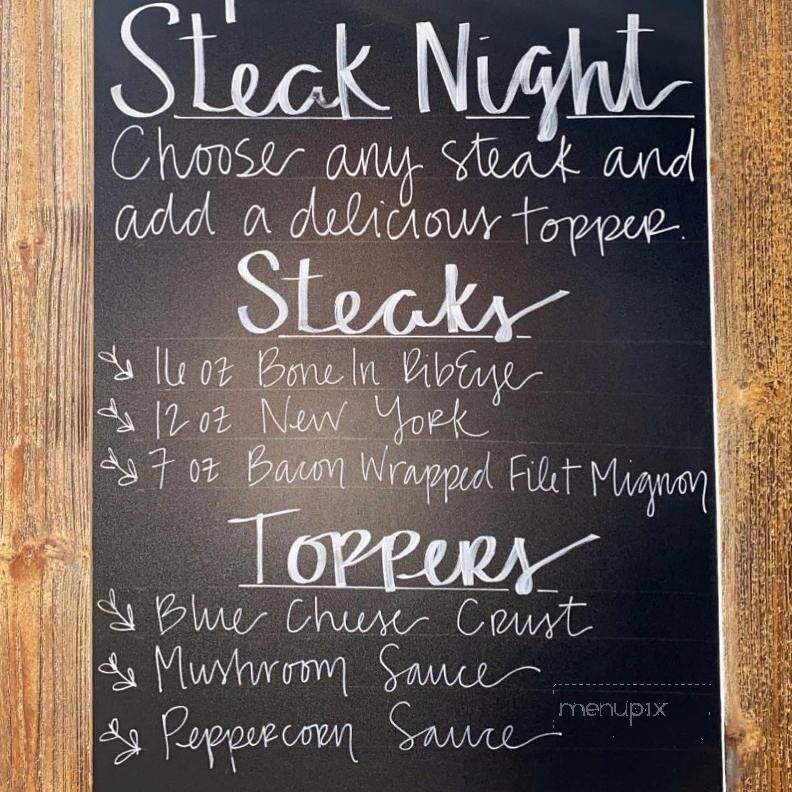 Steak Night
Choose any steak and
add a delicious topper.
Steaks
16 oz Bone In RibEye
12 oz New York
7 oz Bacon Wrapped Filet Mignon
Toppers
Blue Cheese Crust
Mushroom Sauce
Peppercorn Sauce
menupix